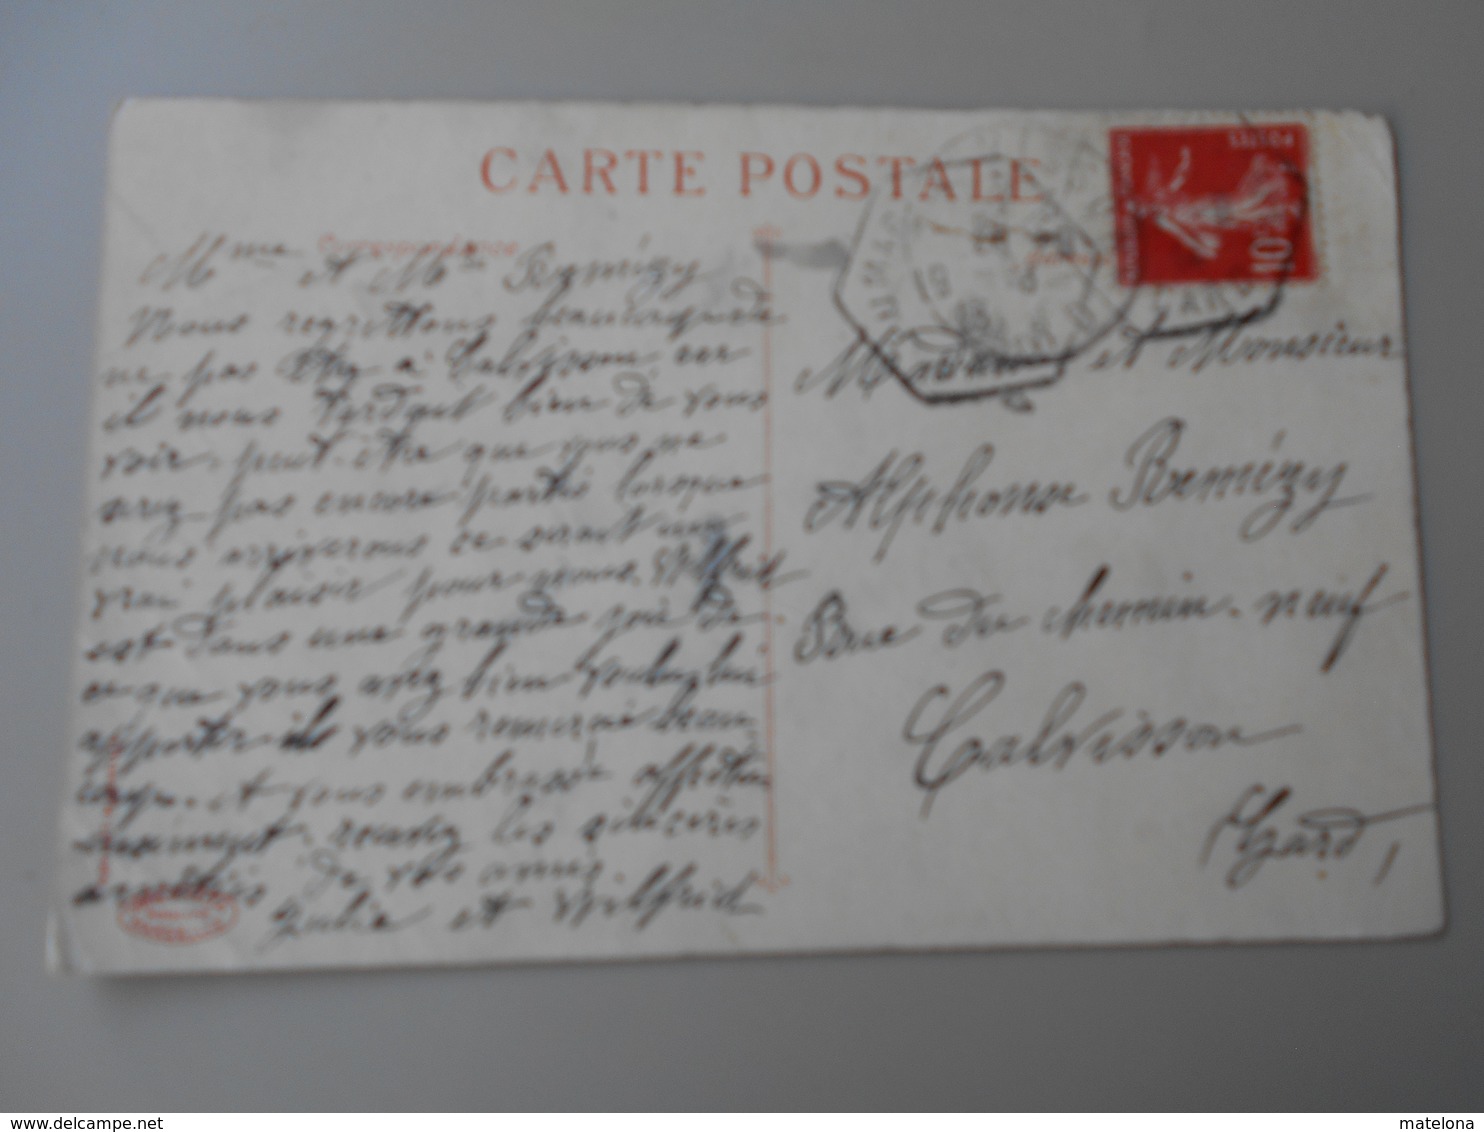 CARTE POSTALE
Correspondance
POSTES
10
Mme et Mr Remézy
Nous regrettons beaucoup de
ne pas être à Calvisson car
il nous tardait bien de vous
voir, peut-être que vous ne
serez pas encore partis lorsque
nous arriverons ce serait un
vrai plaisir pour nous. Wilfrid
est dans une grande joie de
ce que vous avez bien voulu lui
apporter il vous remercie beau
coup. et vous embrasse affectueu
sement recevez les sincères
amitiés de vos amis
Julia et Wilfrid
Madame et Monsieur
Alphonse Remézy
Rue du chemin-neuf
Calvisson
Gard,
delcampe.net
matelona